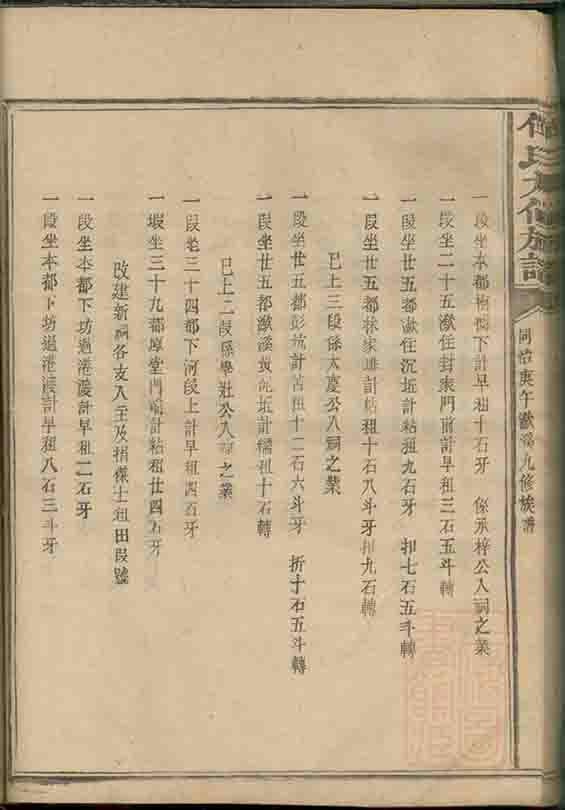 氏九修族譜
同治庚午歙溪九修族譜
一段坐本都梧桐下計早租十石牙 係承梓公入祠之業
一段坐二十五歙住封東門前計早租三石五斗轉
一段坐廿五都歙住沉坵計粘租九石牙 扣七石五斗轉
一段坐廿五都林家 計粘租十石八斗牙扣九石轉
已上三段係大慶公入祠之業
一段坐廿五都彭坑計苦租十二石六斗牙 折十石五斗轉
一段坐廿五都歙溪黄泥坵計糯租十石轉
已上二段係學壯公入祠之業
一段 三十四都下河段上計早租四石牙
一塅坐三十九都厚堂門前計粘租廿四石牙
改建新祠各支入主及捐傑士租田段號
一段坐本都下坊過港渡計早租二石牙
一段坐本都下坊過港渡計早租八石三斗牙